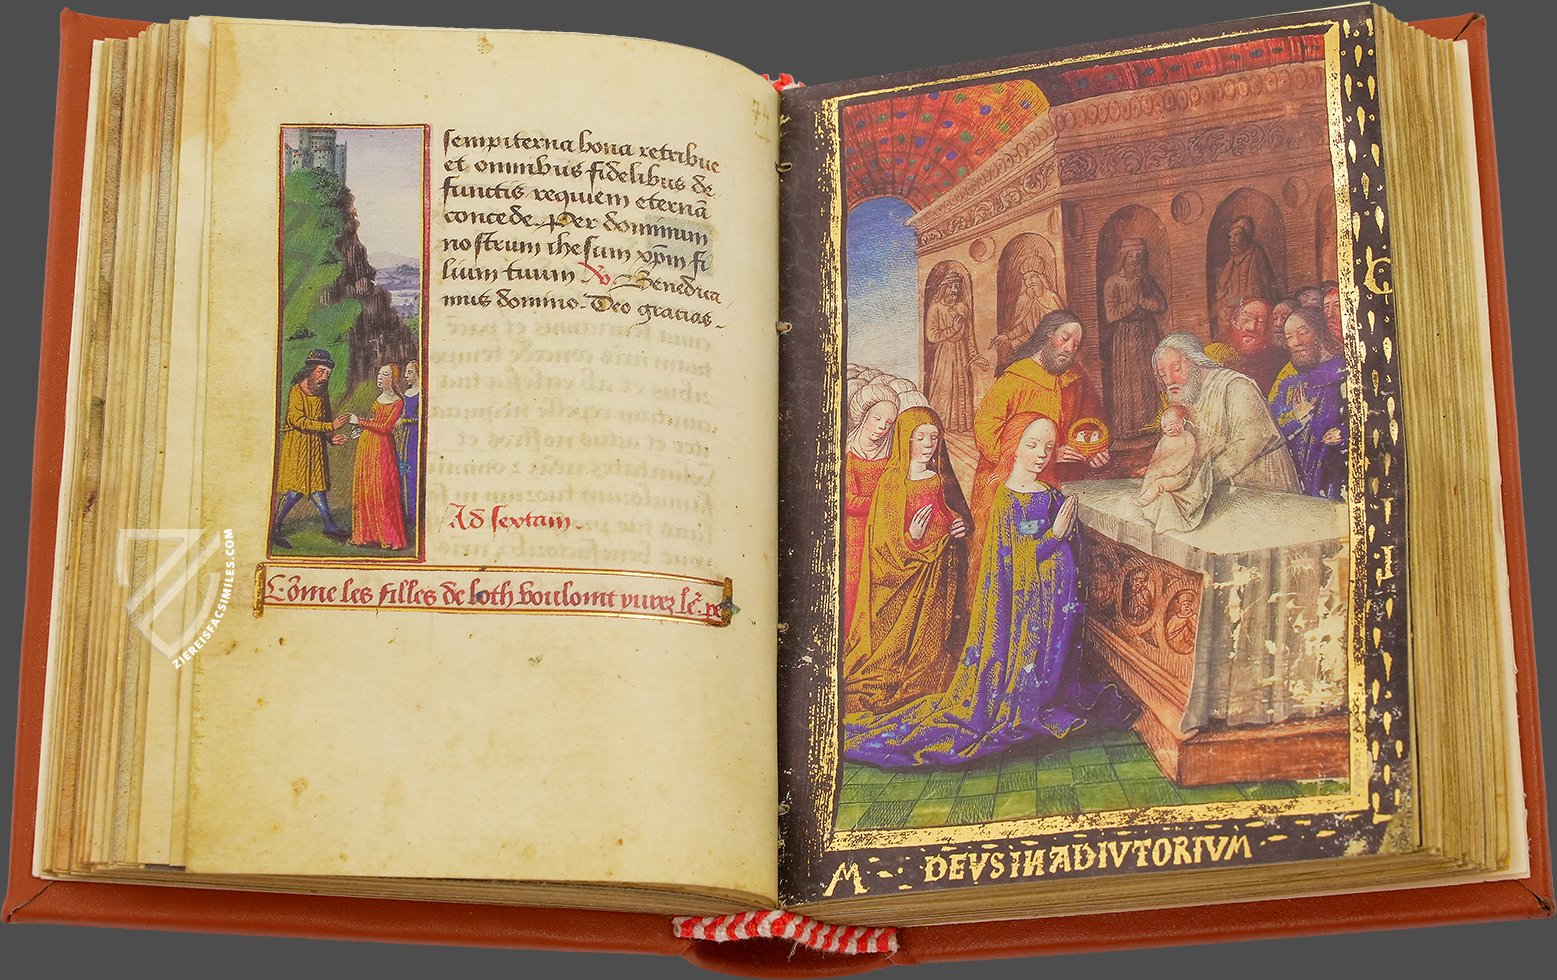 sempiterna bona retribue
et omnibus fidelibus de
functis requiem eternā
concede. Per dominum
nostrum ihesum xp̄m fi
lium tuum V. Benedica
mus domino. Deo gracias.
Ad sextam
Cōme les filles de loth vouloint yurez le
74
M DEVS IN ADIVTORIVM
ZIEREISFACSIMILES.COM